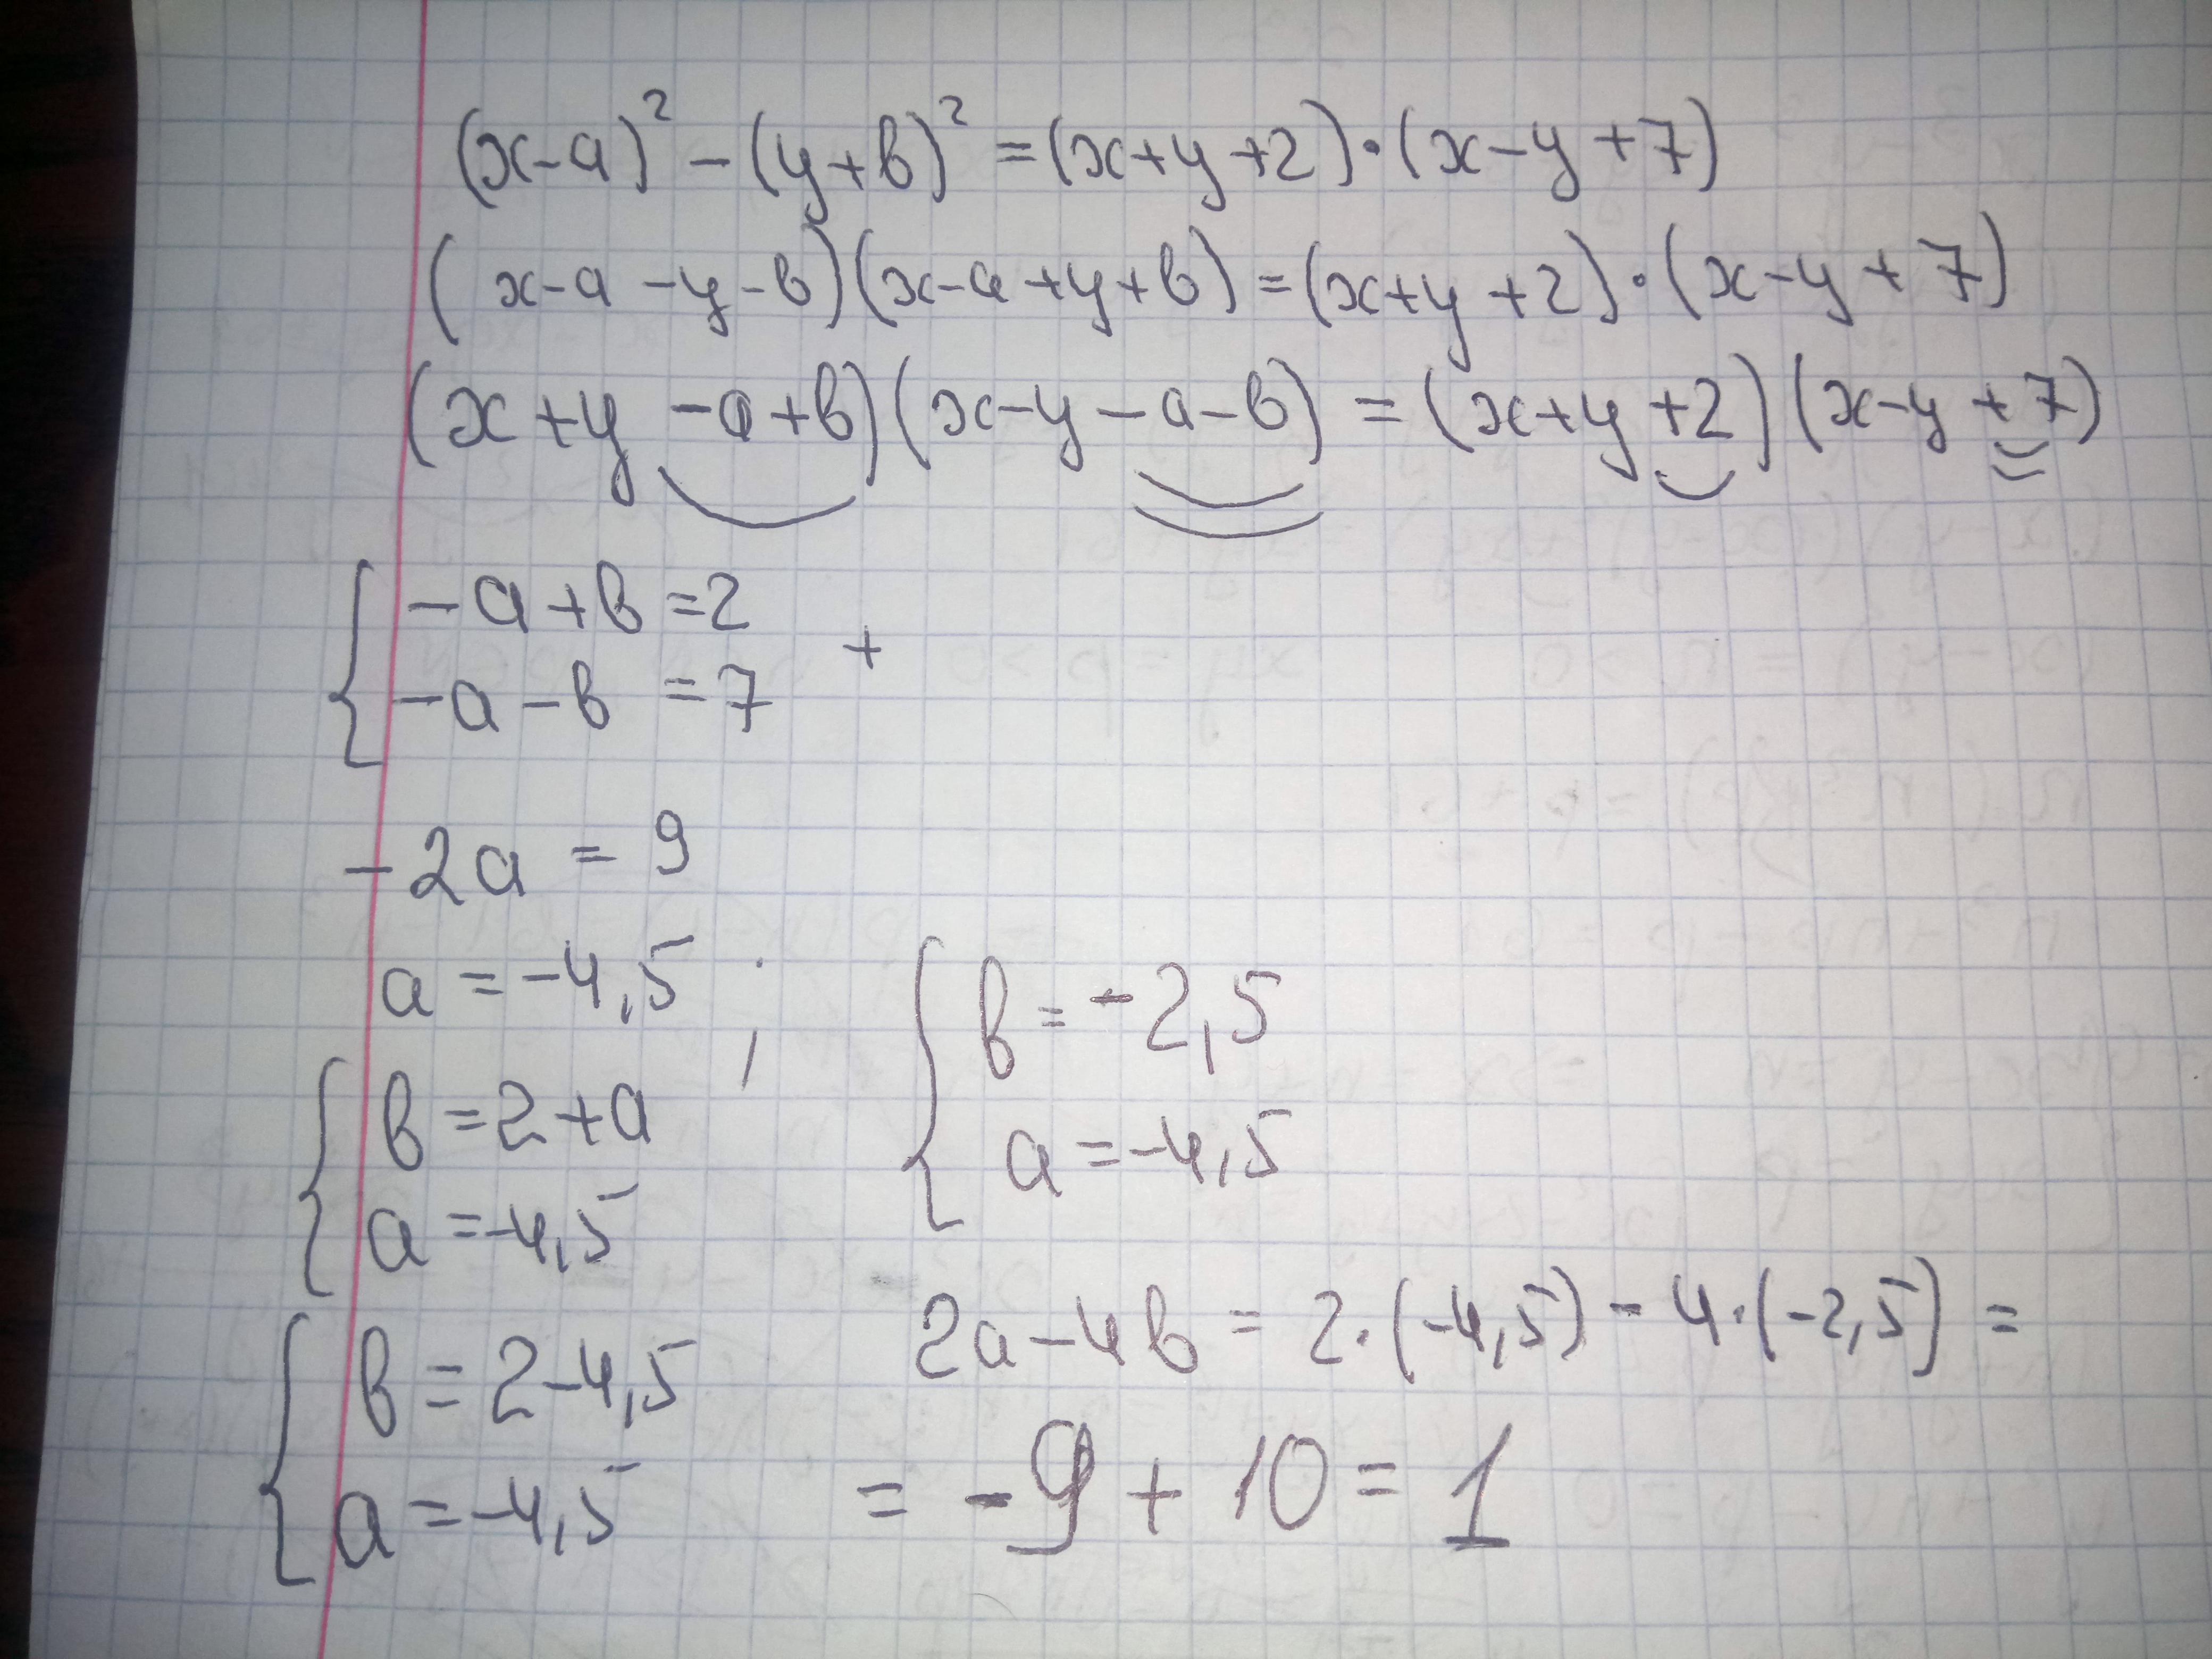 (x-a)² - (y+в)² = (x+y+2)·(x-y+7)
(x-a-y-в)(x-a+y+в) = (x+y+2)·(x-y+7)
(x+y-a+в)(x-y-a-в) = (x+y+2)(x-y+7)
-a+в=2
+
-a-в=7
-2a=9
a=-4,5;
в=2+a
a=-4,5
в=2-4,5
a=-4,5
в=-2,5
a=-4,5
2a-4в=2·(-4,5)-4·(-2,5)=
=-9+10=1